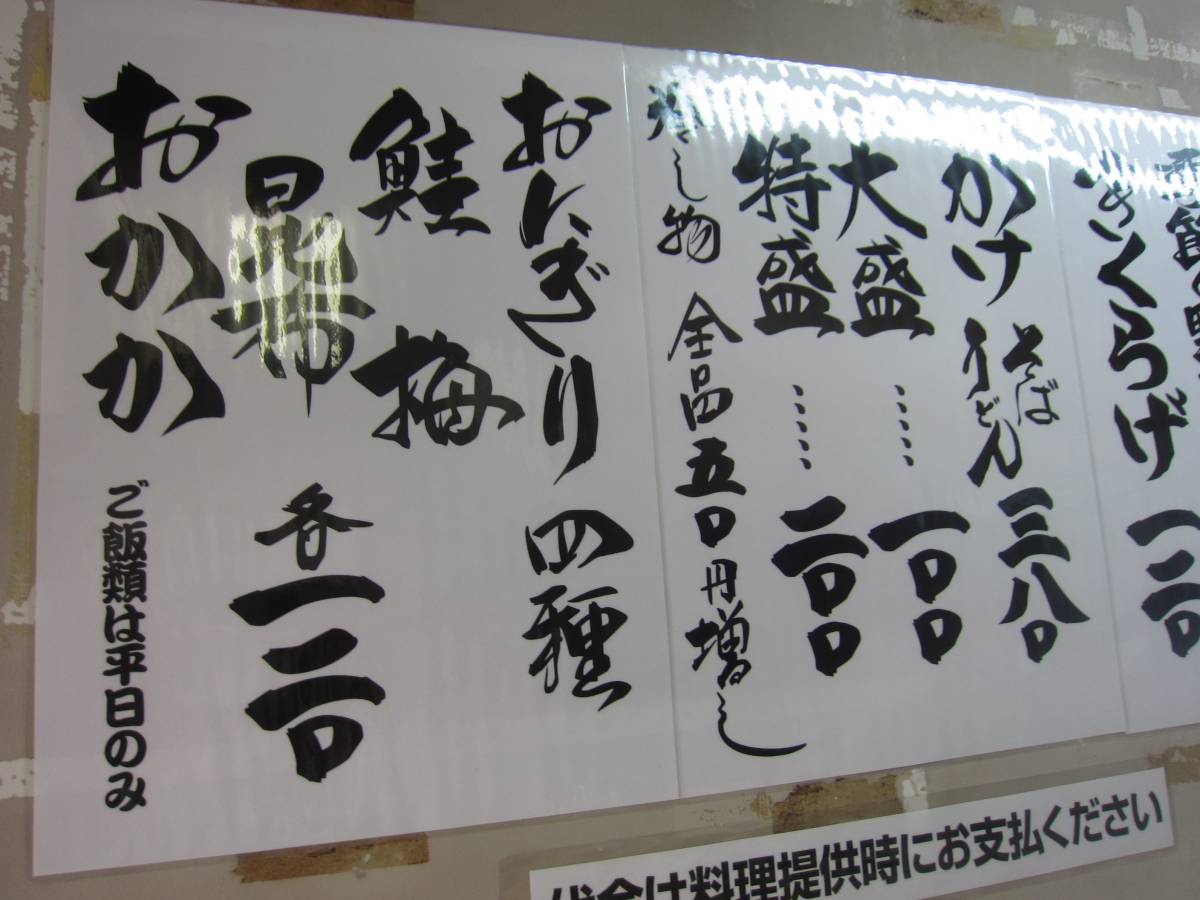 きくらげ 一二〇
かけ そば うどん 三八〇
大盛 ‥‥‥ 一〇〇
特盛 ‥‥‥ 二〇〇
冷し物 全品五〇円増し
おにぎり四種
鮭 梅
昆布 各一二〇
おかか
ご飯類は平日のみ
代金は料理提供時にお支払ください